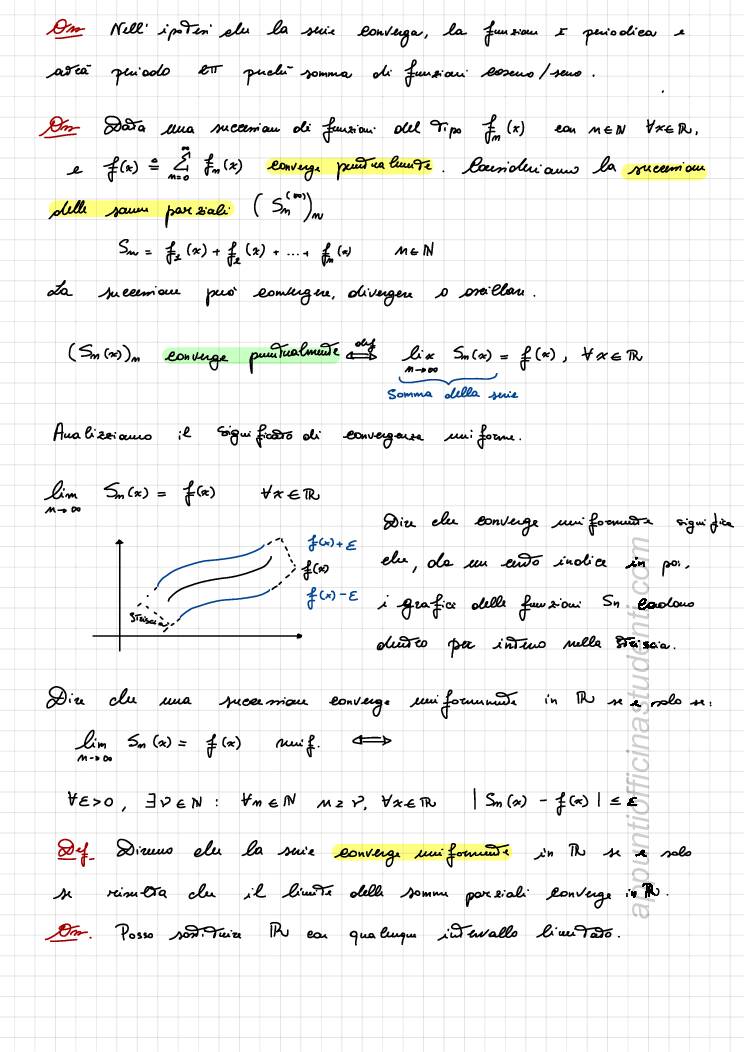 Oss Nell'ipotesi che la serie converga, la funzione è periodica e
avrà periodo 2π perché somma di funzioni coseno/seno.
Oss Data una successione di funzioni del tipo fₙ(x) con n∈ℕ ∀x∈ℝ,
e f(x) ≝ ∑_{n=0}^{∞} fₙ(x) converge puntualmente. Consideriamo la successione
delle somme parziali (Sₙ^{(x)})ₙ
Sₙ = f₁(x) + f₂(x) + ... + fₙ(x) n∈ℕ
La successione può convergere, divergere o oscillare.
(Sₙ(x))ₙ converge puntualmente ⟺^{def} lim_{n→∞} Sₙ(x) = f(x), ∀x∈ℝ
Somma della serie
Analizziamo il significato di convergenza uniforme.
lim_{n→∞} Sₙ(x) = f(x) ∀x∈ℝ
f(x)+ε
f(x)
f(x)-ε
Striscia
Dire che converge uniformemente significa
che, da un certo indice in poi,
i grafici delle funzioni Sn cadono
dentro per intero nella striscia.
Dire che una successione converge uniformemente in ℝ se e solo se:
lim_{n→∞} Sₙ(x) = f(x) unif. ⟺
∀ε>0, ∃ν∈ℕ : ∀n∈ℕ n≥ν, ∀x∈ℝ |Sₙ(x) - f(x)| ≤ ε
Def. Diremo che la serie converge uniformemente in ℝ se e solo
se risulta che il limite delle somme parziali converge in ℝ.
Oss. Posso sostituire ℝ con qualunque intervallo limitato.
appuntiofficinastudenti.com